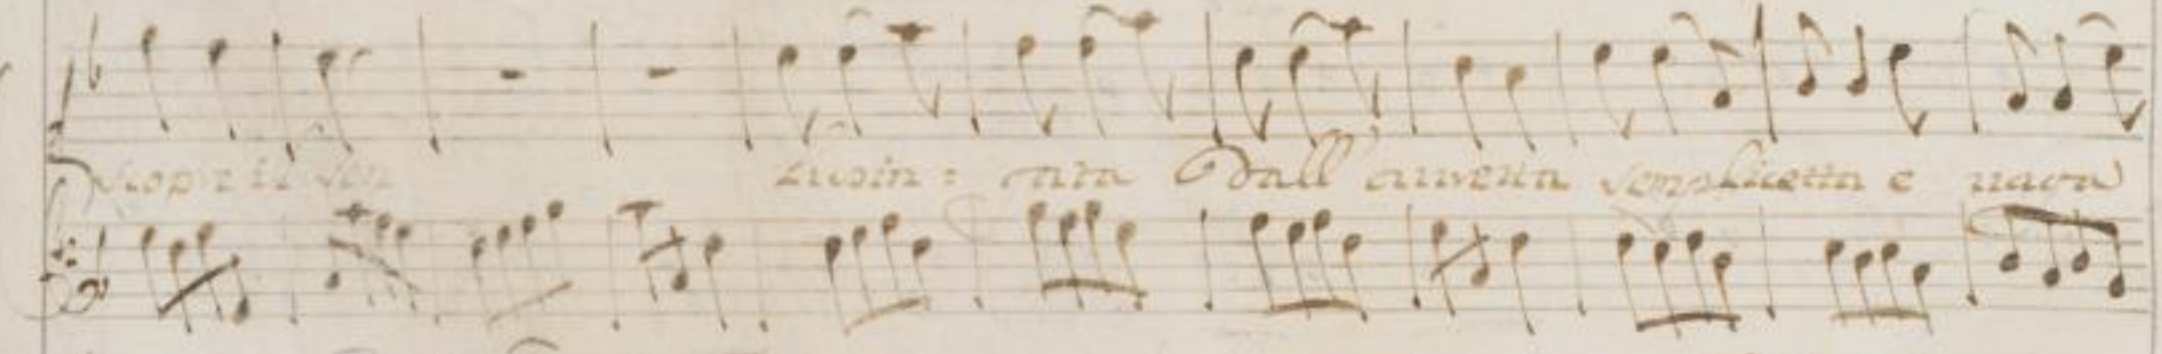 scopr il sen Lusin= gata Dall' auretta semplicetta e nava